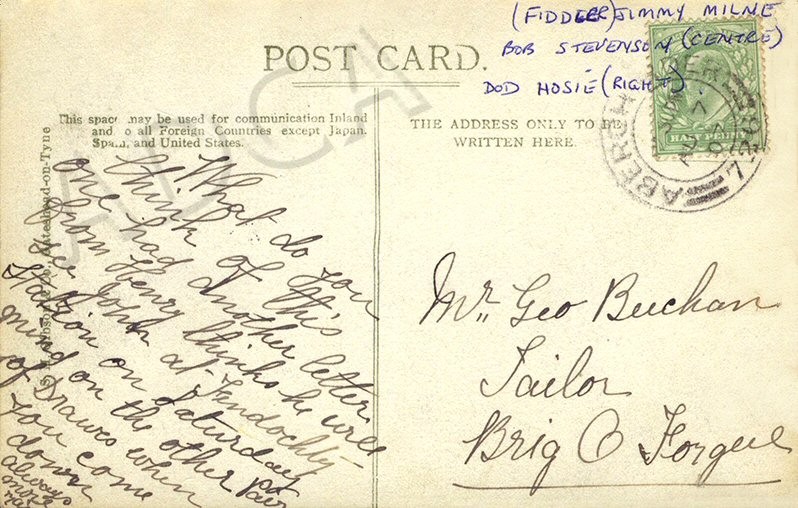 (FIDDLER) JIMMY MILNE
BOB STEVENSON (CENTRE)
DOD HOSIE (RIGHT).
POST CARD.
This space may be used for communication Inland
and to all Foreign Countries except Japan,
Spain, and United States.
THE ADDRESS ONLY TO BE
WRITTEN HERE.
HALF PENNY
ALCA
What do you
think of this
one had another letter
from Henry thinks he will
see John at Tendochty
Station on Saturday
mind on the other pair
of Drawes when
you come
down
always
more
Mr. Geo Buchan
Tailor
Brig O Forgue